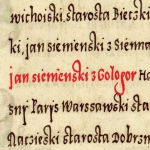 wichoiski, starosta Bieczki
ki, jan siemienski z Sienna
jan siemienski z Gologor Ha
sny Parys Warszawski sta
Naczieski starosta Dobrzn